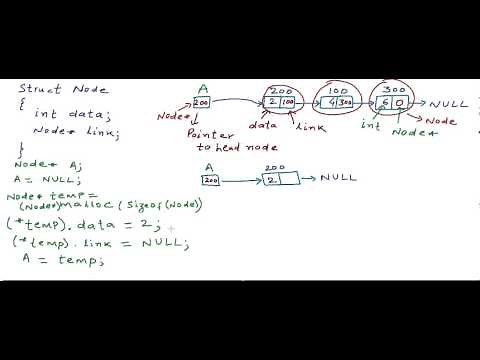 Struct Node
{
int data;
Node* link;
}
Node* A;
A = NULL;
Node* temp =
(Node*)malloc(sizeof(Node))
(*temp).data = 2;
(*temp).link = NULL;
A = temp;
A
200
200
2 100
100
4 300
300
6 0
NULL
Node*
Pointer
to head node
data
link
int
Node*
Node
A
200
200
2
NULL